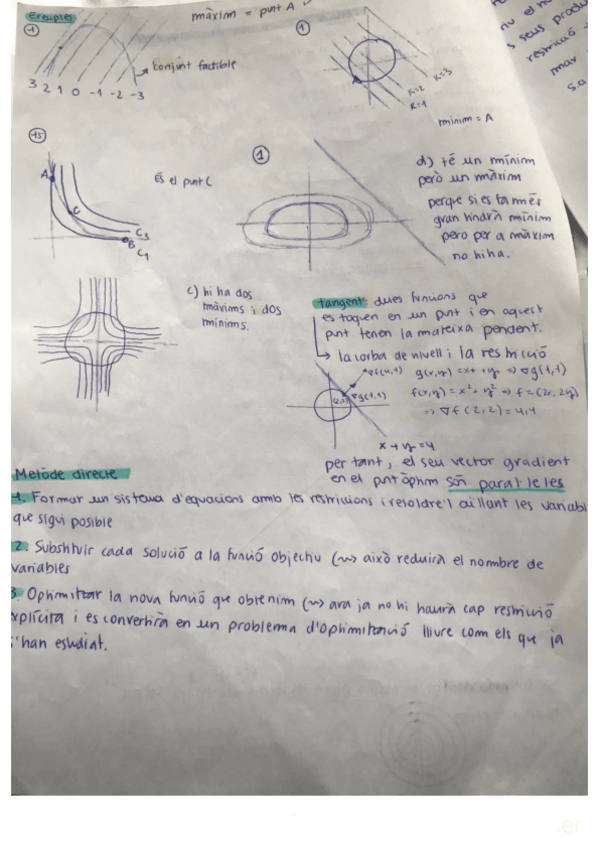 Exemples
màxim = punt A
conjunt factible
3 2 1 0 -1 -2 -3
1
K=3
K=2
K=1
mínim = A
15
A
C
B
C3
C1
És el punt C
1
d) té un mínim
però un màxim
perque si es fa més
gran tindrà mínim
pero per a màxim
no hi ha.
c) hi ha dos
màxims i dos
mínims.
tangent: dues funcions que
es toquen en un punt i en aquest
punt tenen la mateixa pendent.
→ la corba de nivell i la restricció
∇f(4,4) g(x,y) = x + y ⇒ ∇g(1,1)
(2,2) ∇g(1,1) f(x,y) = x² + y² ⇒ f = (2x, 2y)
⇒ ∇f(2,2) = 4,4
x + y = 4
per tant, el seu vector gradient
en el punt òptim són paral·leles
Metòde directe
1. Formar un sistema d'equacions amb les restriccions i resoldre'l aïllant les variabl
que sigui possible
2. Substituir cada solució a la funció objectiu (⇝ això reduirà el nombre de
variables
3. Optimitzar la nova funció que obtenim (⇝ ara ja no hi haurà cap restricció
explícita i es convertirà en un problema d'optimització lliure com els que ja
s'han estudiat.
nu el
s seus produ
restricció
max
s.a